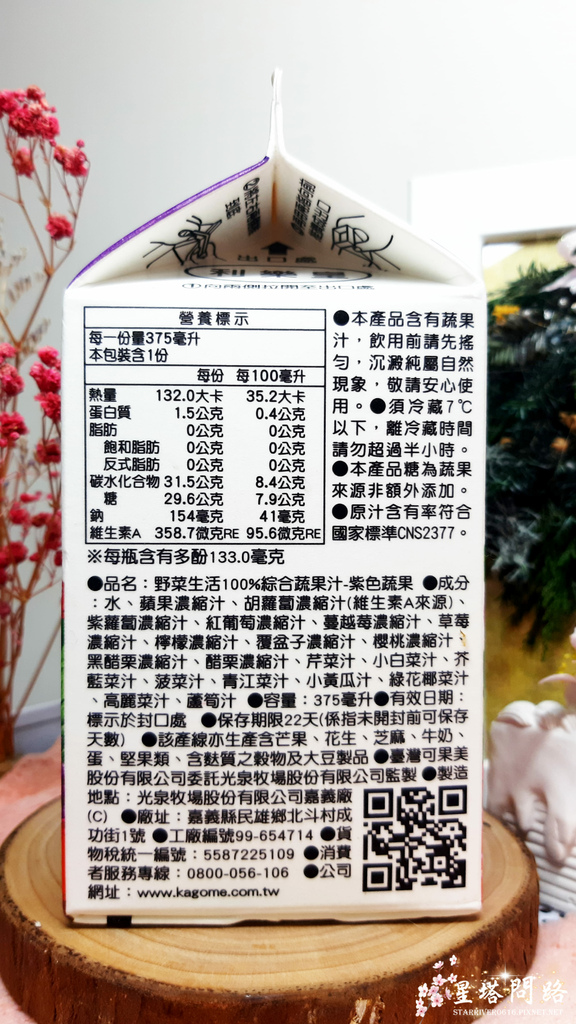 出口處
利樂皇
①向兩側拉開至出口處
營養標示
每一份量375毫升
本包裝含1份
每份 每100毫升
熱量 132.0大卡 35.2大卡
蛋白質 1.5公克 0.4公克
脂肪 0公克 0公克
飽和脂肪 0公克 0公克
反式脂肪 0公克 0公克
碳水化合物 31.5公克 8.4公克
糖 29.6公克 7.9公克
鈉 154毫克 41毫克
維生素A 358.7微克RE 95.6微克RE
※每瓶含有多酚133.0毫克
●本產品含有蔬果
汁，飲用前請先搖
勻，沉澱純屬自然
現象，敬請安心使
用。●須冷藏7℃
以下，離冷藏時間
請勿超過半小時。
●本產品糖為蔬果
來源非額外添加。
●原汁含有率符合
國家標準CNS2377。
●品名：野菜生活100%綜合蔬果汁-紫色蔬果 ●成分
：水、蘋果濃縮汁、胡蘿蔔濃縮汁(維生素A來源)、
紫蘿蔔濃縮汁、紅葡萄濃縮汁、蔓越莓濃縮汁、草莓
濃縮汁、檸檬濃縮汁、覆盆子濃縮汁、櫻桃濃縮汁、
黑醋栗濃縮汁、醋栗濃縮汁、芹菜汁、小白菜汁、芥
藍菜汁、菠菜汁、青江菜汁、小黃瓜汁、綠花椰菜汁
、高麗菜汁、蘆筍汁 ●容量：375毫升●有效日期：
標示於封口處 ●保存期限22天(係指未開封前可保存
天數) ●該產線亦生產含芒果、花生、芝麻、牛奶、
蛋、堅果類、含麩質之穀物及大豆製品●臺灣可果美
股份有限公司委託光泉牧場股份有限公司監製●製造
地點：光泉牧場股份有限公司嘉義廠
(C) ●廠址：嘉義縣民雄鄉北斗村成
功街1號 ●工廠編號99-654714 ●貨
物稅統一編號：5587225109 ●消費
者服務專線：0800-056-106 ●公司
網址：www.kagome.com.tw
星塔問路
STARRIVER0610.PIXNET.NET